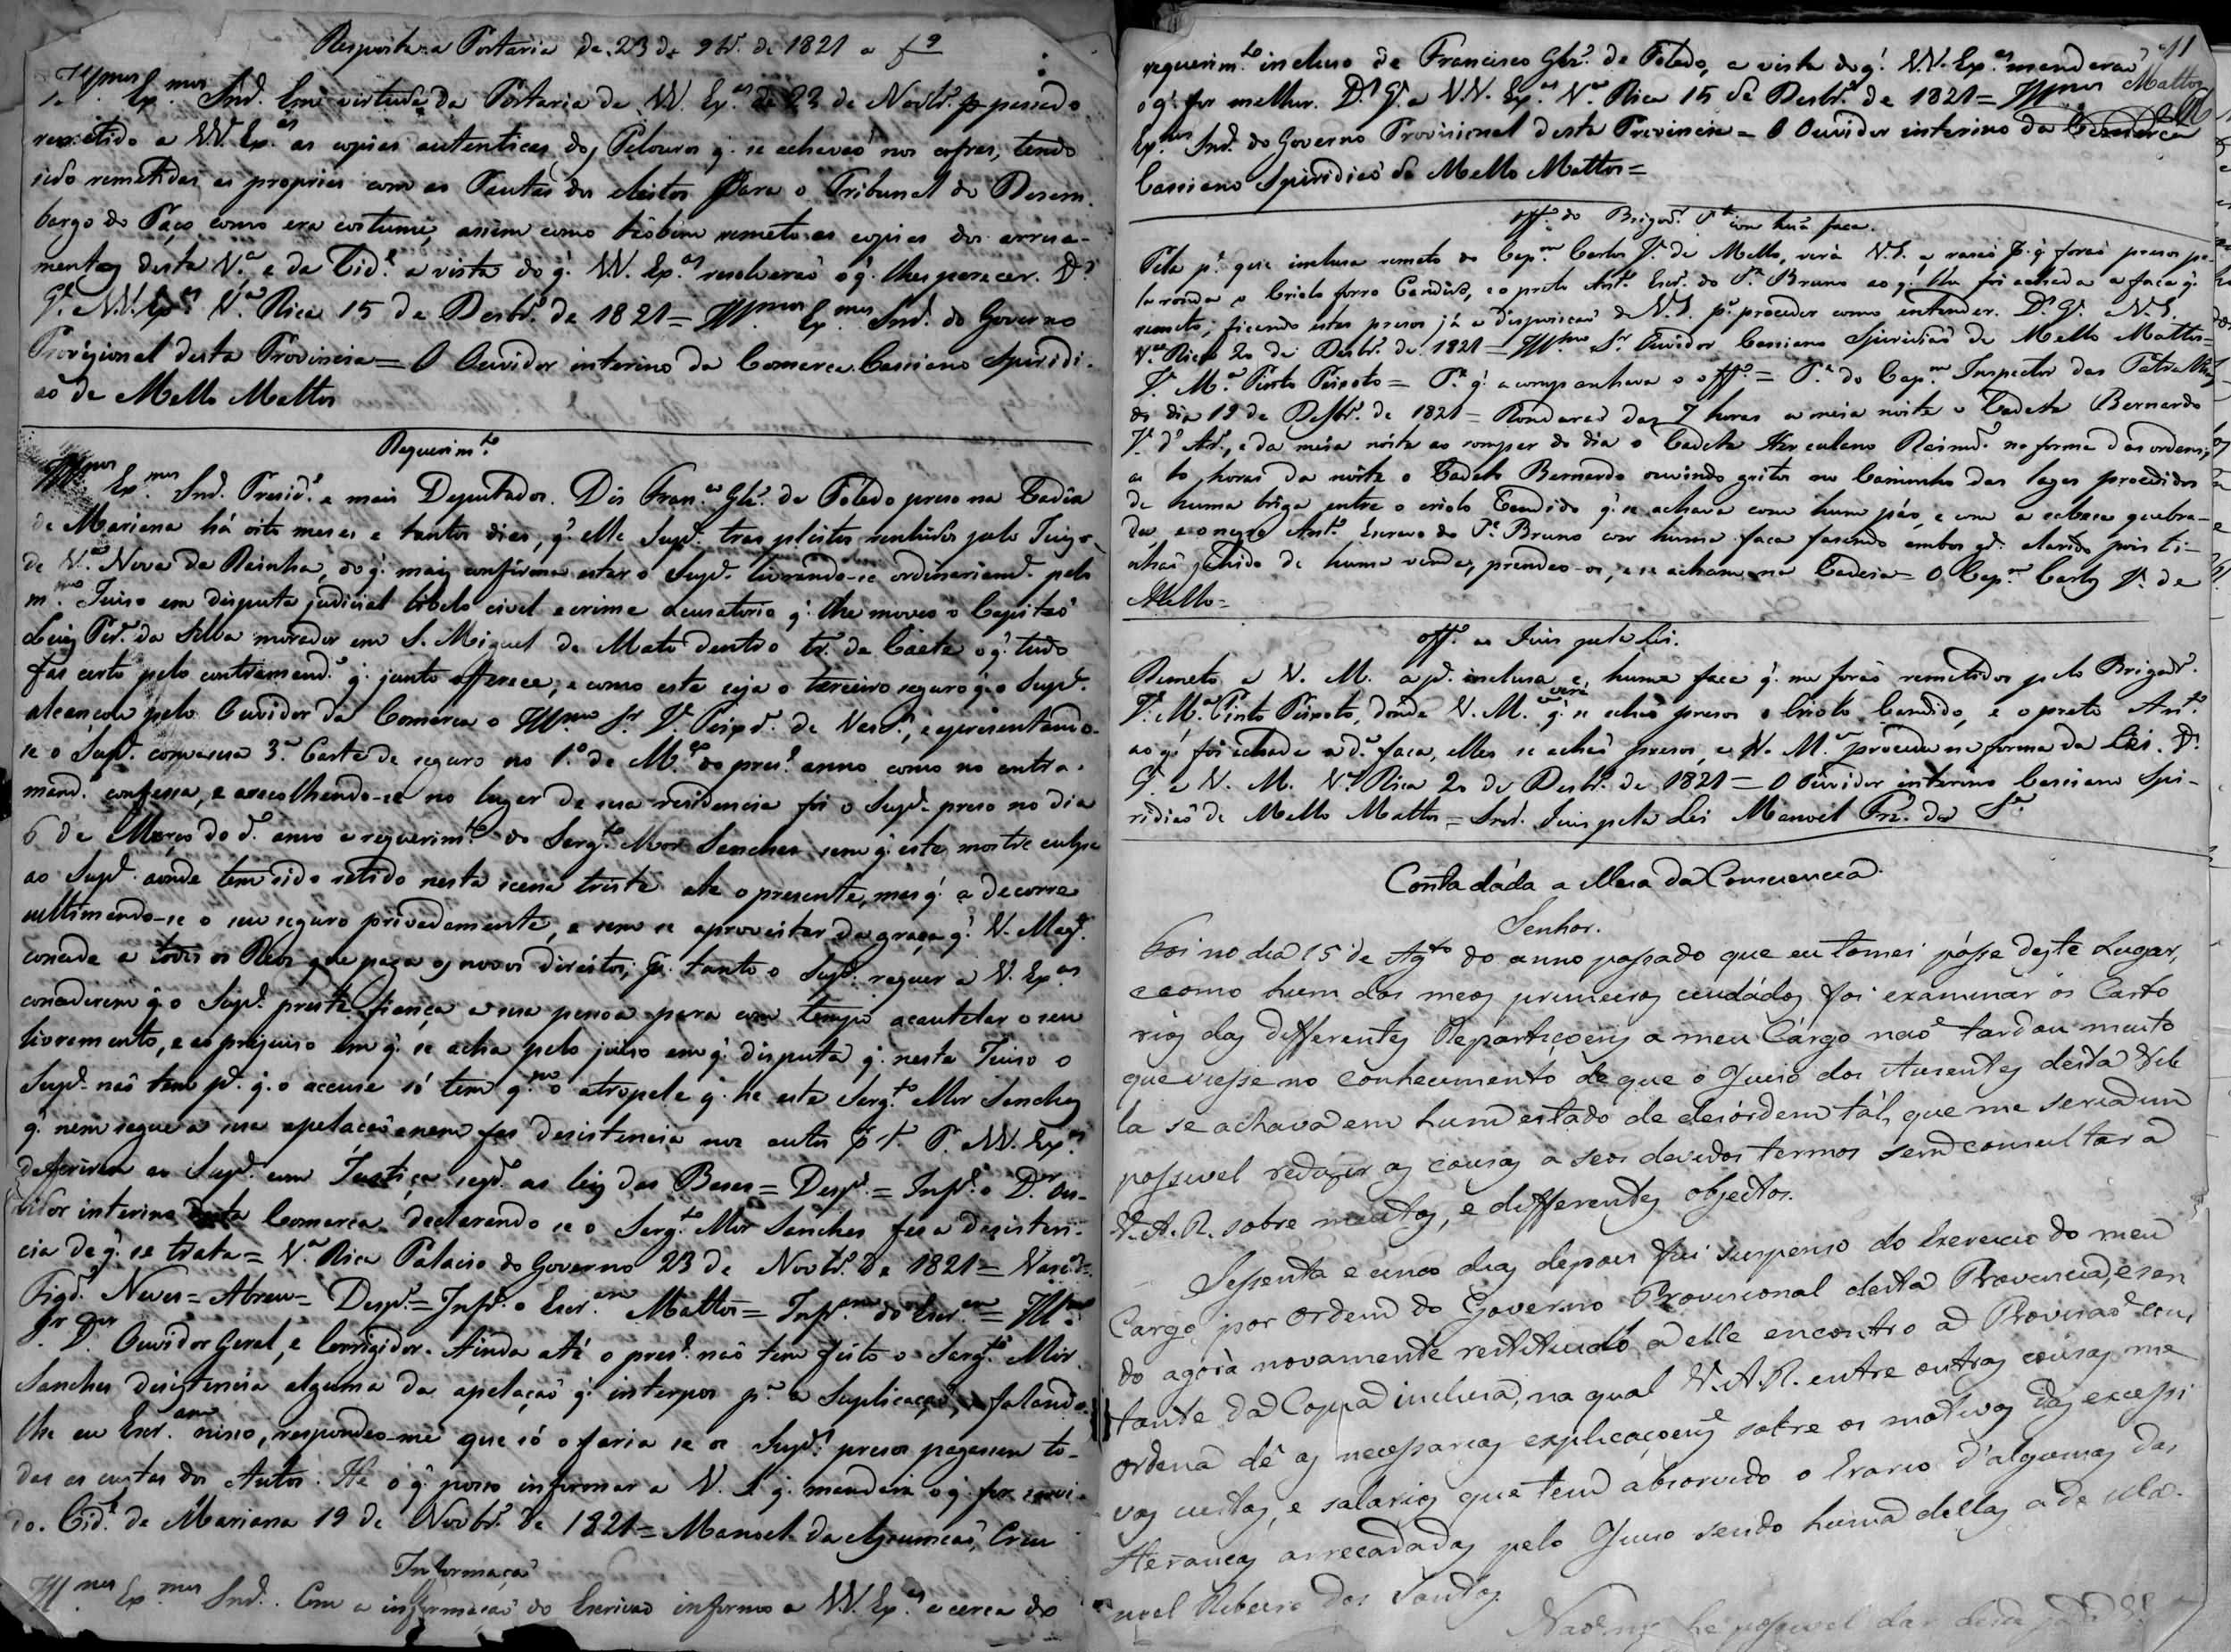 Resposta a Portaria de 23 de 9br.º de 1821 a f 9
Ill.mos Ex.mos Snr.s Em virtude da Portaria de VV. Ex.as de 23 de Novbr.º p. passado
remetido a VV. Ex.as as copias autenticas dos Pelouros q. se achavaõ nos cofres, tendo
sido remetidas as proprias com as Pautas dos eleitos para o Tribunal do Desem-
bargo do Paço, como era costume, assim como tãobem remeto as copias dos arrua-
mentos desta V.ª e da Cid.e a vista do q. VV. Ex.as resolveraõ o q. lhes parecer. D.s
G.e a VV. Ex.as V.ª Rica 15 de Desbr.º de 1821 = Ill.mos Ex.mos Snr.s do Governo
Provizional desta Provincia = O Ouvidor interino da Comarca Cassiano Spiridi-
aõ de Mello Mattos
Requerim.to
Ill.mos Ex.mos Snr.s Presid.e e mais Deputados. Diz Fran.co Glz.' de Toledo preso na Cadia
de Mariana há oito meses e tantos dias, q. elle Sup.e tras pleitos renhidos pelo Juizo
de V.ª Nova da Rainha, do q. mais confirma estar o Sup.e livrando-se ordinariam.e pelo
m.mo Juiso em disputa judicial libelo civel e crime acusatorio q. lhe moveo o Capitaõ
Luiz Per.ª da Silva morador em S. Miguel de Mato dentro tr.º de Caeté o q. tudo
fas certo pelo contramand.º q. junto offerece, e como este seja o terceiro seguro q. o Sup.e
alcançou pelo Ouvidor da Comarca o Ill.mo S.r J.e Teix.ª de Vas.os, e apresentando-
se o Sup.e com sua 3.ª Carta de seguro no 1.º de M.ço do pres.e anno como no contra-
mand.º confessa, e arecolhendo-se no lugar de sua residencia foi o Sup.e preso no dia
6 de Março do d.º anno a requerim.to do Sarg.to Mor Sanches sem q. este mostre culpa
ao Sup.e aonde tem sido retido nesta scena triste ate o presente, mas q. a decorra
ultimando-se o seu seguro privadamente, e sem se aproveitar da graça q. V. Mag.e
concede a todos os Reos que paga os novos direitos; p. tanto o Sup.e requer a V. Ex.as
concederem q. o Sup.e preste fiança a sua pessoa para com tempo acautelar o seu
livramento, e o prejuiso em q. se acha pelo juiso em q. disputa q. neste Juiso o
Sup.e não tem p.e q. o accuse só tem q.m o atropele q. he este Sarg.to Mor Sanches
q. nem segue a sua apelaçaõ e nem fas desistencia nos autos p. t. P. a VV. Ex.as
defiriren ao Sup.e com Justiça seg.do as leis das Bases = Desp.º = Inf.e o D.r Ou-
vidor interino desta Comarca declarando se o Sarg.to Mor Sanches fes a desisten-
cia de q. se trata = V.ª Rica Palacio do Governo 23 de Novbr.º de 1821 = Vasc.os
Figd.º Neves = Abreu = Desp.º = Inf.e o Escr.am Mattos = Inf.am do Escr.am = Ill.mo
Sr. D.r Ouvidor Geral, e Corregidor. Ainda até o pres.e não tem feito o Sarg.to Mór
Sanches desistencia alguma da apelaçaõ q. interpos p.ª a Suplicaçaõ, e falando-
lhe eu Escr.am nisso, respondeo-me que só o faria se os Sup.es presos pagassem to-
das as custas dos Autos. He o q. posso informar a V. S. q. mandará o q. for servi-
do. Cid.e de Mariana 19 de Novbr.º de 1821 = Manoel da Assumçaõ Crus
Informaçaõ
Ill.mos Ex.mos Snr.s. Com a informaçaõ do Escrivaõ informo a VV. Ex.as a cerca do
11
requerim.to incluso de Francisco Glz.' de Toledo, a vista do q. VV. Ex.as mandaraõ
o q. for melhor. D.s G.e a VV. Ex.as V.ª Rica 15 de Desbr.º de 1821 = Ill.mos
Mattos
Ex.mos Snr.s do Governo Provisional desta Provincia = O Ouvidor interino da Comarca
Cassiano Spiridiaõ de Mello Mattos =
Off.º do Brigad.º com huã faca.
Pela p.e que inclusa remeto do Cap.m Carlos J.e de Mello, verá V.S. a rasaõ p. q. foraõ presos pe-
la ronda o Criolo forro Candido, e o preto Ant.º Escr.º do P.e Bruno ao q. lhe foi achada a faca q.
remeto, ficando estes presos já a disposiçaõ de V.S. p.ª proceder como entender. D.s G.e a V.S.
V.ª Rica 20 de Desbr.º de 1821 = Ill.mo S.r Ouvidor Cassiano Spiridiaõ de Mello Mattos =
J.e M.ª Pinto Peixoto = P.e q. acompanhava o off.º = P.e do Cap.m Inspector das Patrulhas
do dia 19 de Desbr.º de 1821 = Rondaraõ das 7 horas a meia noite o Cadete Bernardo
J.e d' , e da meia noite ao romper do dia o Cadete Herculano Raimd.º na forma das ordens,
as 10 horas da noite o Cadete Bernardo ouvindo gritos no Caminho das lages procedidos
de huma briga entre o criolo Candido q. se achava com hum páo, e com a cabeça quebra-
da e o negro Ant.º Escravo do P.e Bruno com huma faca fasendo ambos gr.e alarido pois ti-
nhaõ sahido de huma venda, prendeo-os, e se achaõ na Cadeia = O Cap.m Carlos J.e de
Mello =
Off.º ao Juis pela Lei.
Remeto a V. M. a p.e inclusa e huma faca q. me foraõ remetidos pelo Brigad.º
J.e M.ª Pinto Peixoto, donde V. M. verá q. se achaõ presos o Criolo Candido, e o preto Ant.º
ao q. foi achada a d.ª faca, elles se achaõ presos, e V. M.ce proceda na forma da Lei. D.s
G.e a V. M. V.ª Rica 20 de Desbr.º de 1821 = O Ouvidor interino Cassiano Spi-
ridiaõ de Mello Mattos = Snr. Juis pela Lei Manoel Frz. da S.ª
Conta dáda a Mesa da Consciencia.
Senhor.
Foi no dia 15 de Ag.to do anno passado que eu tomei pósse deste Lugar,
e como hum dos meos primeiros cuidádos foi examinar os Carto
rios das differentes Repartiçoens a meu Cárgo naõ tardou muito
que viesse no conhecimento de que o Juiso dos Ausentes desta Vil
la se achava em hum estado de desórdem tál, que me seria im
possivel reduzir as cousas a seos devidos termos sem consultar a
V. A. R. sobre muitos, e differentes objectos.
Sessenta e cinco dias depois fui suspenso do Exercicio do meu
Cargo por ordem do Governo Provisional desta Provincia, e sen
do agóra novamente restituido a elle encontro a Provisaõ cons
tante da Copia inclusa, na qual V. A. R. entre outras cousas me
ordena dê as necessarias explicaçoens sobre os motivos das excessi
vas custas, e salarios que tem absorvido o Erario d'algumas das
Heranças arrecadadas pelo Juiso sendo huma dellas a de Ma
noel Ribeiro dos Santos.
Naõ me he possivel dar